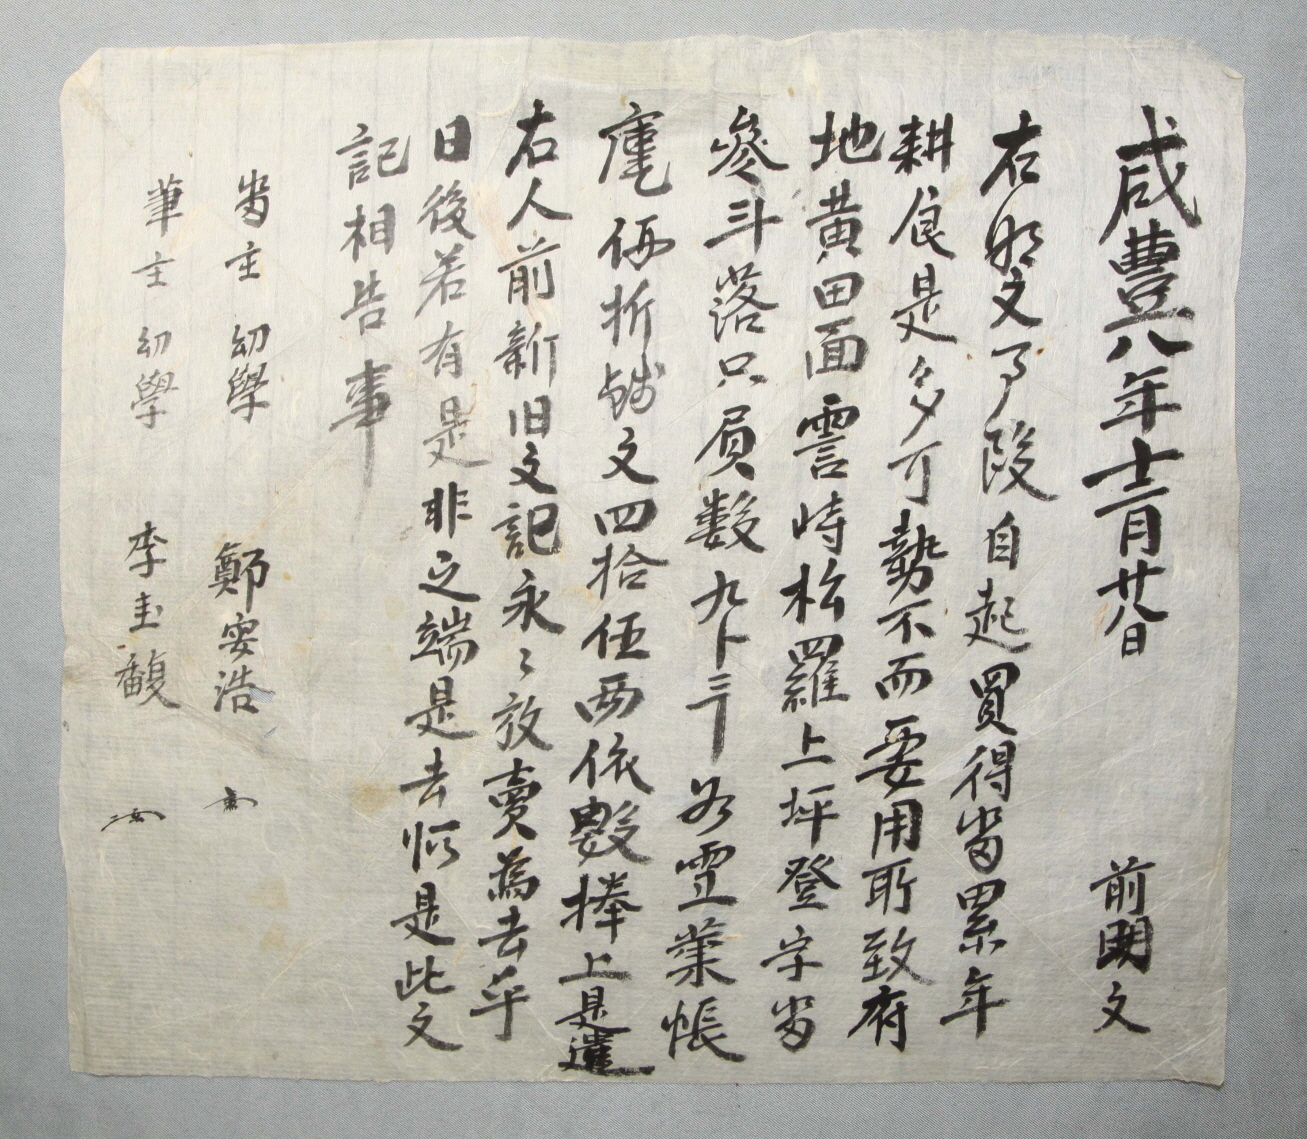 咸豊八年十二月廿八日 前明文
右明文事段自起買得畓累年
耕食是多可勢不而要用所致府
地黄田面雲峙松羅上坪登字畓
參斗落只負數九卜三 㐣 
庫乙折錢文四拾伍兩依數捧上是遣
右人前新旧文記永永放賣為去乎
日後若有是非之端是去所是此文
記相告事
畓主 幼學 鄭安浩
筆主 幼學 李圭馥